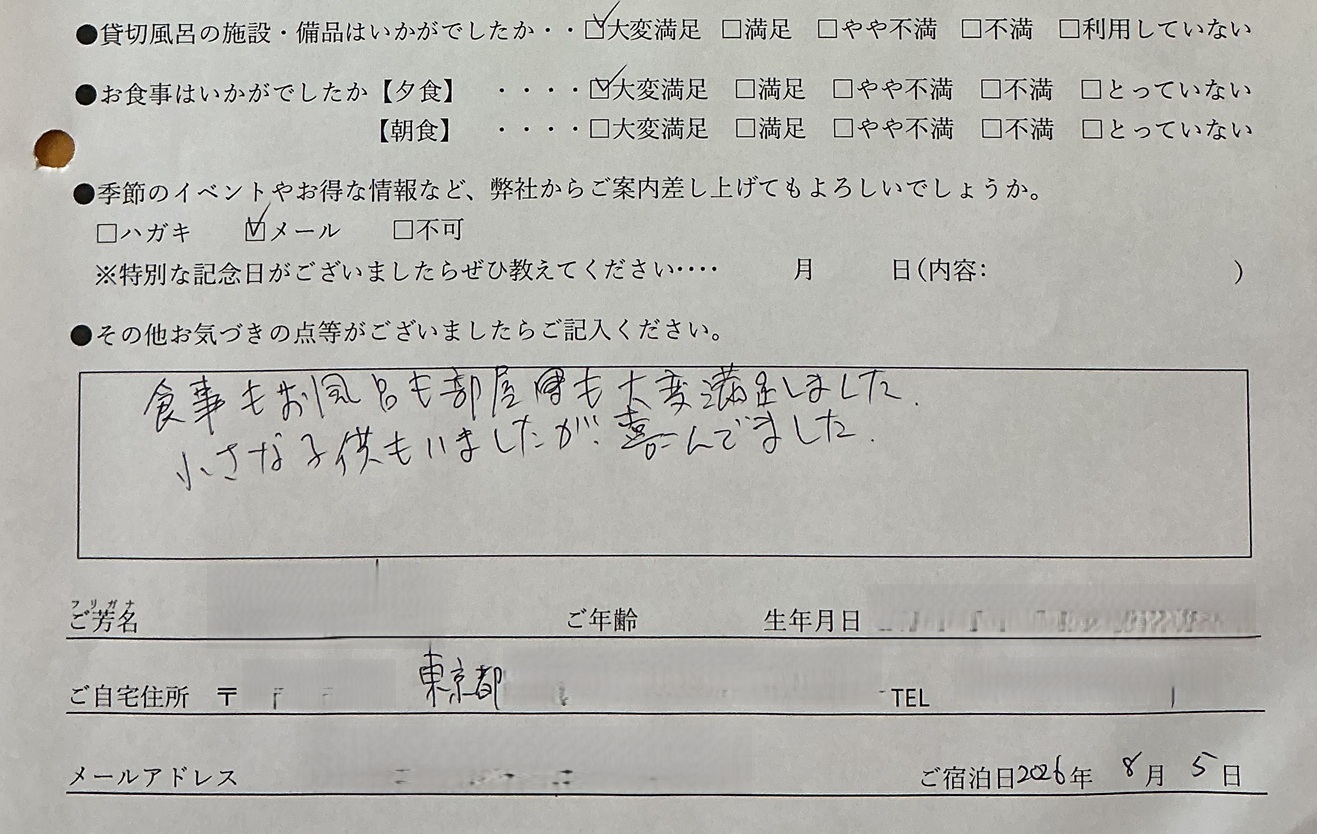 ●貸切風呂の施設・備品はいかがでしたか・・☑大変満足 □満足 □やや不満 □不満 □利用していない
●お食事はいかがでしたか【夕食】 ・・・・☑大変満足 □満足 □やや不満 □不満 □とっていない
【朝食】 ・・・・□大変満足 □満足 □やや不満 □不満 □とっていない
●季節のイベントやお得な情報など、弊社からご案内差し上げてもよろしいでしょうか。
□ハガキ ☑メール □不可
※特別な記念日がございましたらぜひ教えてください‥‥ 月 日(内容: )
●その他お気づきの点等がございましたらご記入ください。
食事もお風呂も部屋も大変満足しました.
小さな子供もいましたが、喜んでました.
フリガナ
ご芳名 ご年齢 生年月日
ご自宅住所 〒 東京都 TEL
メールアドレス ご宿泊日2026年 8月 5日